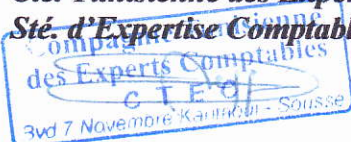 Sté. d'Expertise Comptabl
Compagnie
des Experts Comptables
C T E C
Bvd 7 Novembre - Sousse